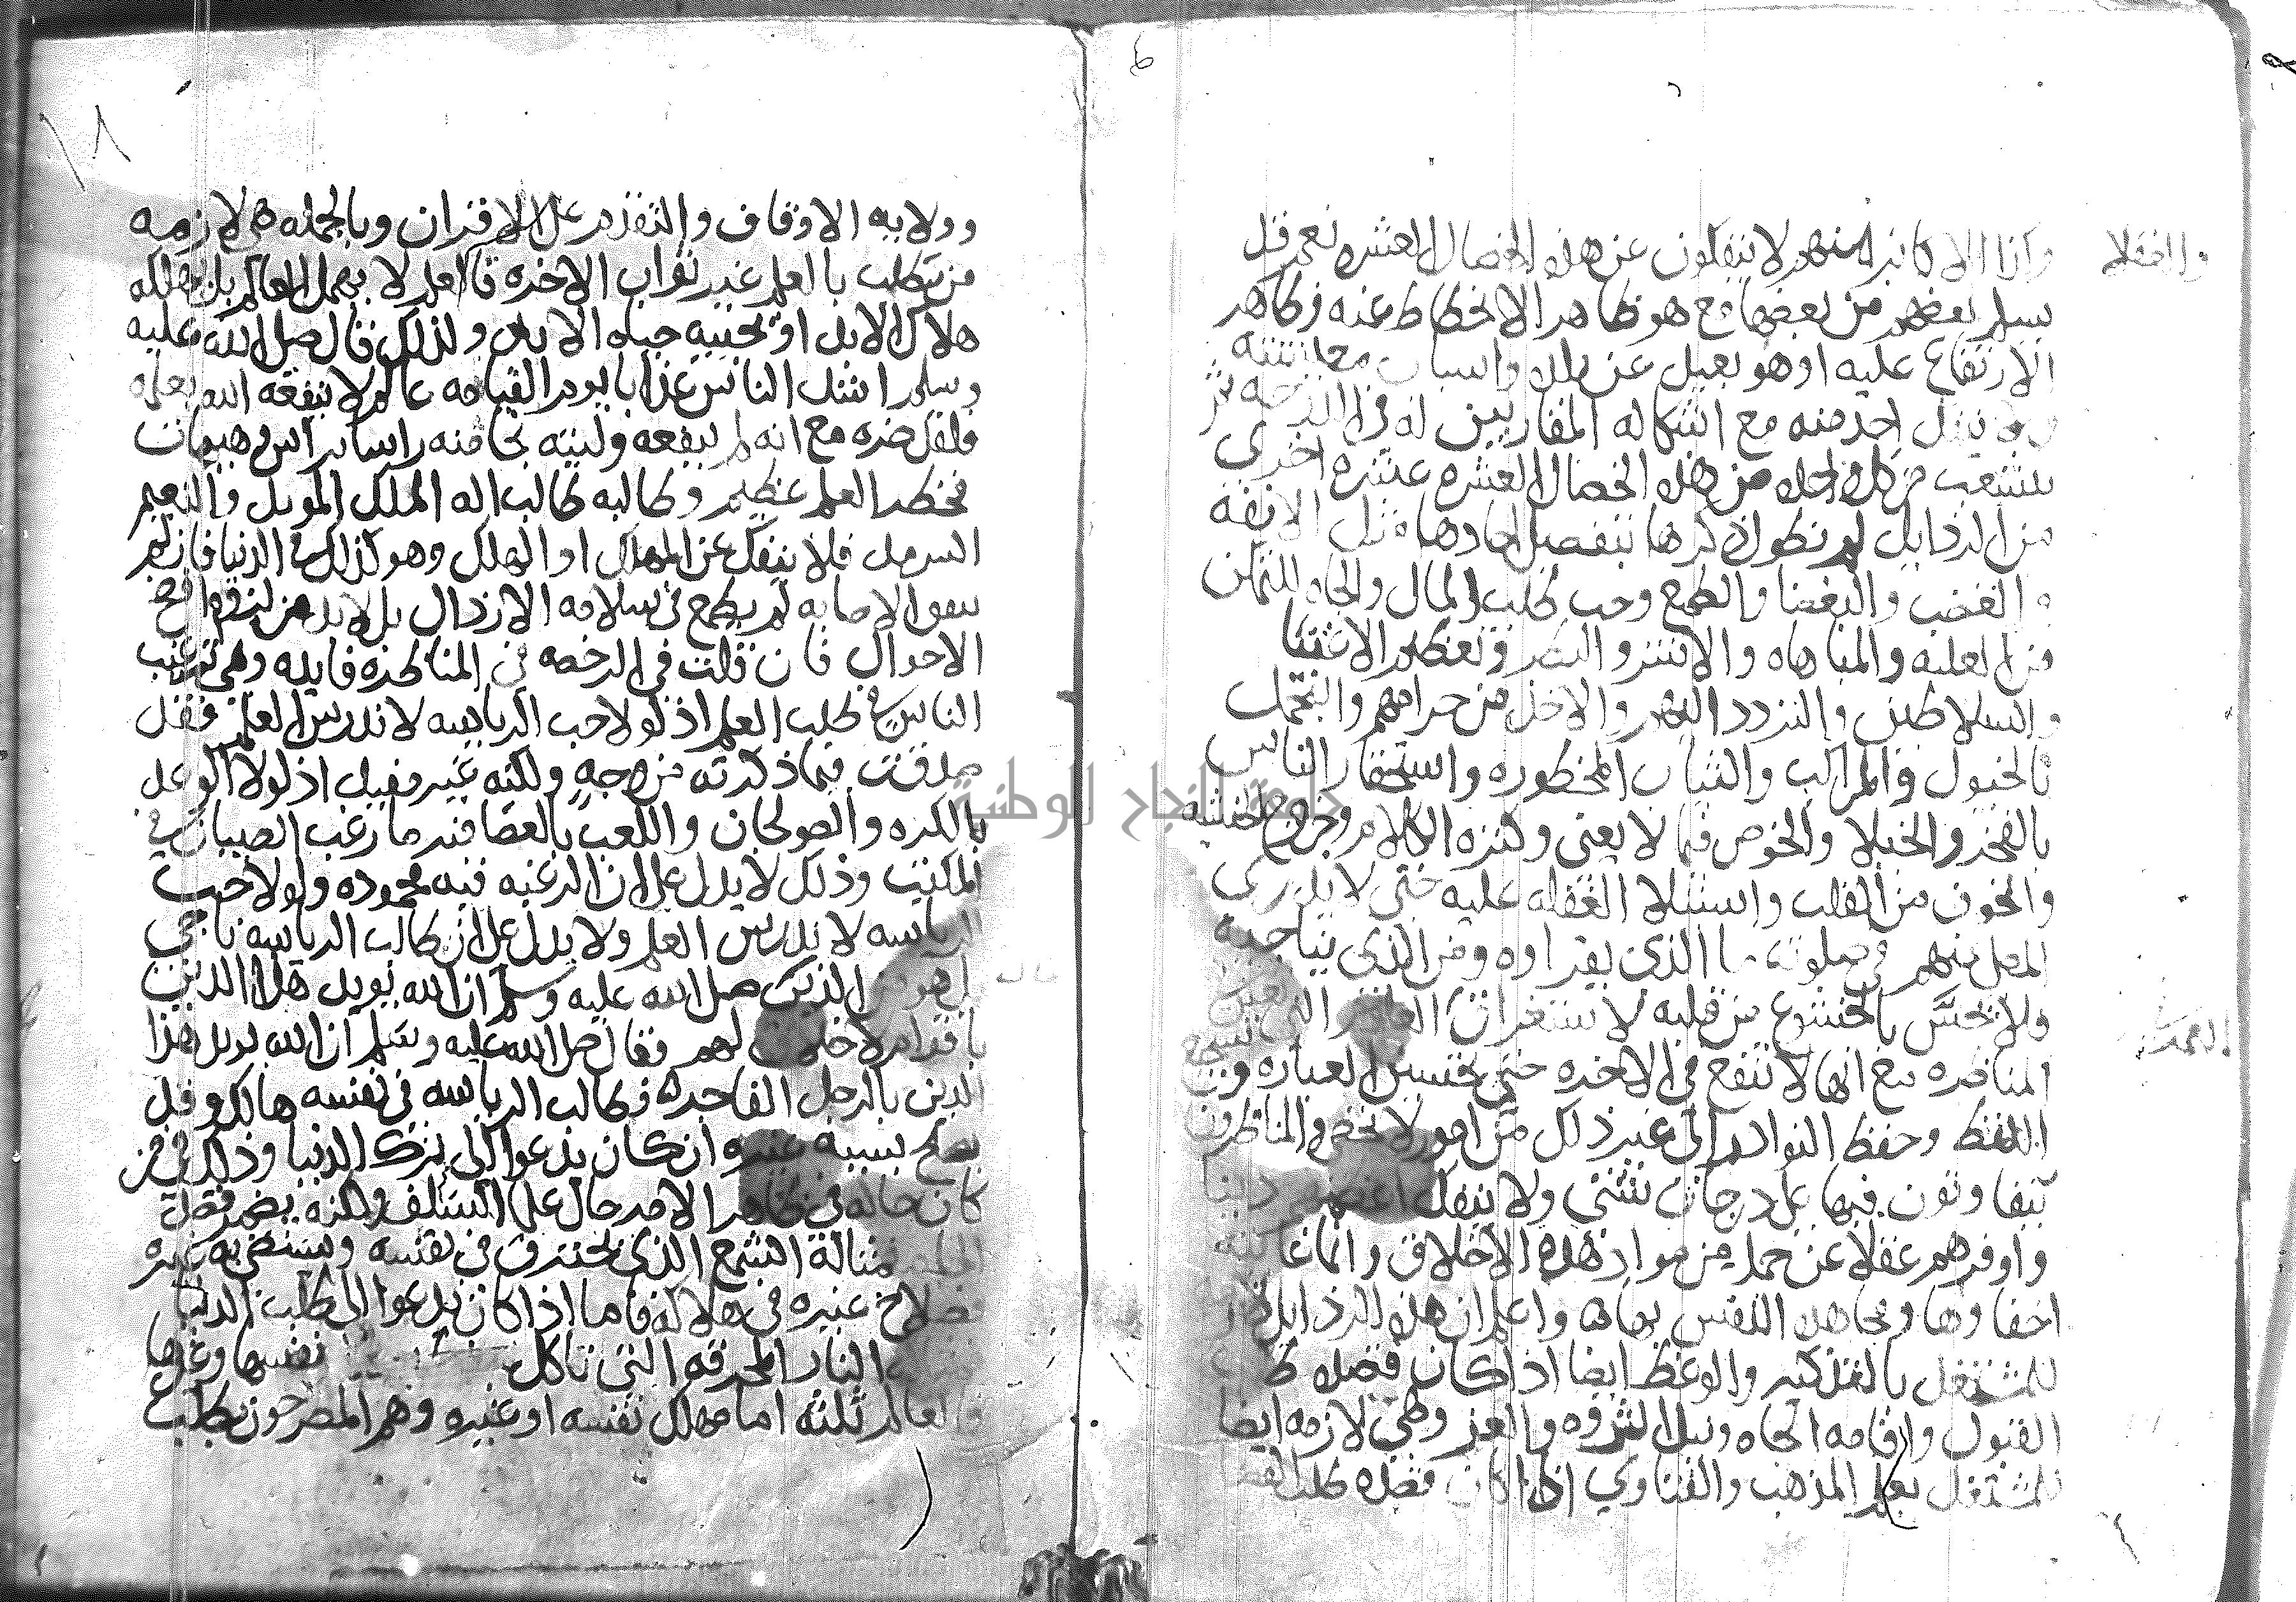 والعقلا
وانا الاكابر منهم لا ينفكون عن هذه الخصال العشره نعم قد
يسلم بعضهم من بعضها مع من هو ظاهر الانحطاط عنه وظاهر
الارتفاع عليه او هو بعيد عن بلده واسباب معيشته
ولا ينفك احد منه مع اشكاله المقاربين له في الدرجه ثم
يتشعب من كل واحده من هذه الخصال العشره عشره اخرى
من الرذايل لم نطول بذكرها بتفصيل احادها مثل الانفه
و الغضب والبغضا والطمع وحب طلب المال والجاه للتمكن
من الغلبه والمباهاه والاشر والبطر وتعظيم الاغنيا
والسلاطين والتردد اليهم والاخذ من حرامهم والتجمل
بالخيول والمراكب والثياب المحظوره واستحقار الناس
بالفخر والخيلا والخوض فيما لا يعني وكثره الكلام وخروج الخشيه
والخوف من القلب واستيلا الغفله عليه حتى لا يدري
المصلي منهم في صلوته ما الذي يقراوه ومن الذي يناجيه
ولا يحس بالخشوع من قلبه لاستغراق العمر
العمر
المناظره مع انها لا تنفع في الاخره حتى تحسين العباره وتسجيع
اللفظ وحفظ النوادر الى غير ذلك من امور لا تحصى والمناظرون
يتفاوتون فيها على درجات شتى ولا ينفك اعظمهم دينا
واوفرهم عقلا عن جمل من مواد هذه الاخلاق وانما غايته
اخفاوها ومجاهده النفس بها واعلم ان هذه الرذايل
للمشتغل بالتذكير والوعظ ايضا اذا كان قصده طلب
القبول واقامه الجاه ونيل الثروه والعز وهي لازمه ايضا
للمشتغل بعلم المذهب والفتاوي اذا كان قصده طلب القضا
١٨
وولايه الاوقاف والتقدم على الاقران وبالجمله هي لازمه
من يطلب بالعلم غير ثواب الاخره فالعلم لا يهمل العالم بل يهلكه
هلاك الابد او يحييه حياه الابد ولذلك قال صلى الله عليه
وسلم اشد الناس عذابا يوم القيامه عالم لا ينفعه الله بعلمه
فلقد ضره مع انه لم ينفعه وليته نجا منه راسا براس وهيهات
فخطر العلم عظيم وطالبه طالب اله الملك الموبد والنعيم
السرمد فلا ينفك عن الملك او الهلك وهو كذلك الدنيا فان لم
يتفق الاصابه لم يطمع في سلامه الارذال بل لا بد من لزوم افضح
الاحوال فان قلت في الرخصه في المناظره فايده وهي ترغيب
الناس في طلب العلم اذ لولا حب الرياسه لاندرس العلم فقد
صدقت فيما ذكرته من وجه ولكنه غير مفيد اذ لولا الوعد
بالكره والصولجان واللعب بالعصافير ما رغب الصبيان في
المكتب وذلك لا يدل على ان الرغبه فيه محموده ولولا حب
الرياسه لاندرس العلم ولا يدل على ان طالب الرياسه ناجي
بل هو من الذين صلى الله عليه وسلم ان الله يويد هذا الدين
باقوام لا خلاق لهم وقال صلى الله عليه وسلم ان الله يويد هذا
الدين بالرجل الفاجر فطالب الرياسه في نفسه هالك وقد
يصلح بسببه غيره ان كان يدعوا الى ترك الدنيا وذلك في من
كان حاله في ظاهر الامر حال علما السلف ولكنه يضمر قصد
الجاه فمثاله الشمع الذي يحترق في نفسه ويستضي به غيره
فصلاح غيره في هلاكه فاما اذا كان يدعوا الى طلب الدنيا
النار المحرقه التي تاكل نفسها وغيرها
والعالم ثلثه اما مهلك نفسه او غيره وهم المصرحون بطلب